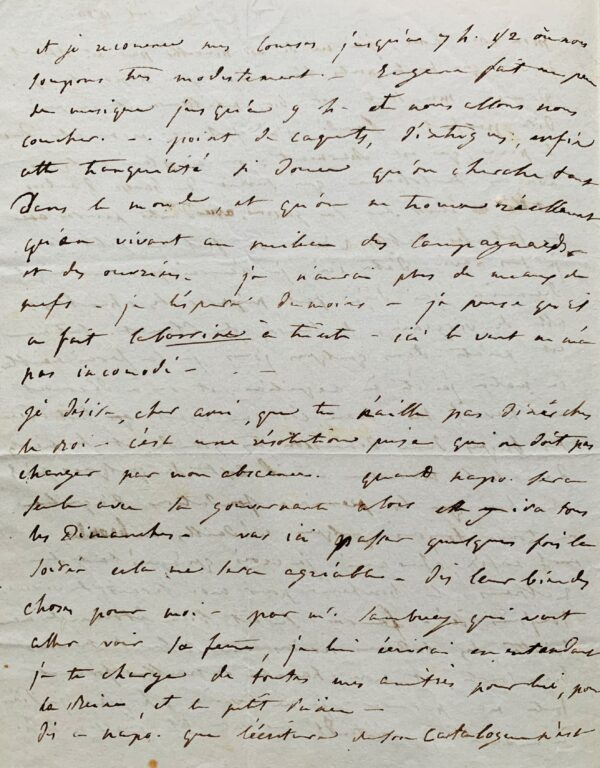 et je recomence mes courses jusqu'a 7 h. 1/2 où nous
soupons tres modestement - Eugene fait un peu
de musique jusqu'à 9 h - et nous allons nous
coucher. - . point de caquets, d'intrigues, enfin
cette tranquilité si douce qu'on cherche tant
Dans le monde, et qu'on ne trouve réellement
qu'en vivant au milieu des Campagnards
et des ouvriers - je n'aurai plus de meaux de
nerfs - je l'éspere du moins - je pense qu'il
a fait la borrine à trieste - ici le vent ne m'a
pas incomodé - . -
je désire, cher ami, que tu n'aille pas diner chez
le roi - c'est une résolution prise qui ne doit pas
changer par mon abscence. quand napo. sera
seule avec sa gouvernante alors elle y ira tous
les Dimanches - vas ici passer quelques fois la
soirée cela me sera agréable - dis leur bien des
choses pour moi - par mr. qui vont
aller voir sa feme, je lui écrirai en entendant
je te charge de toutes mes amitiés pour lui, pour
la Reine, et le ptit
dis a napo. que l'écriture de son Catalogue n'est